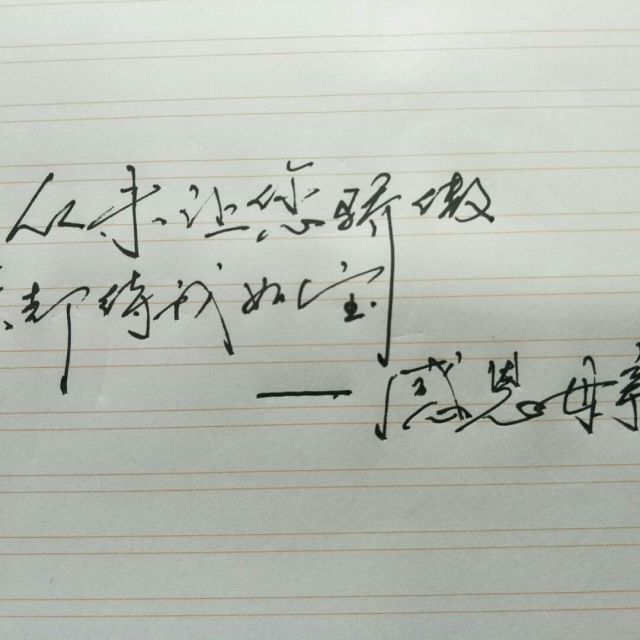 从未让您骄傲
却待我如宝
——感恩母亲